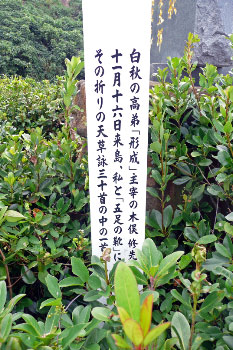 白秋の高弟「形成」主宰の木俣修先
十一月十六日来島、私と「五足の靴」に
その折りの天草詠三十首の中の一首